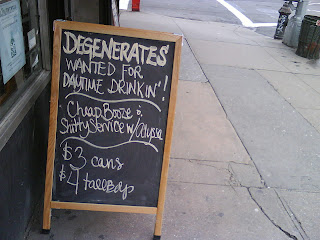 DEGENERATES
WANTED FOR
DAYTIME DRINKIN'!
Cheap Booze &
Shitty Service w/Alyssa
$3 cans
$4 tallboy